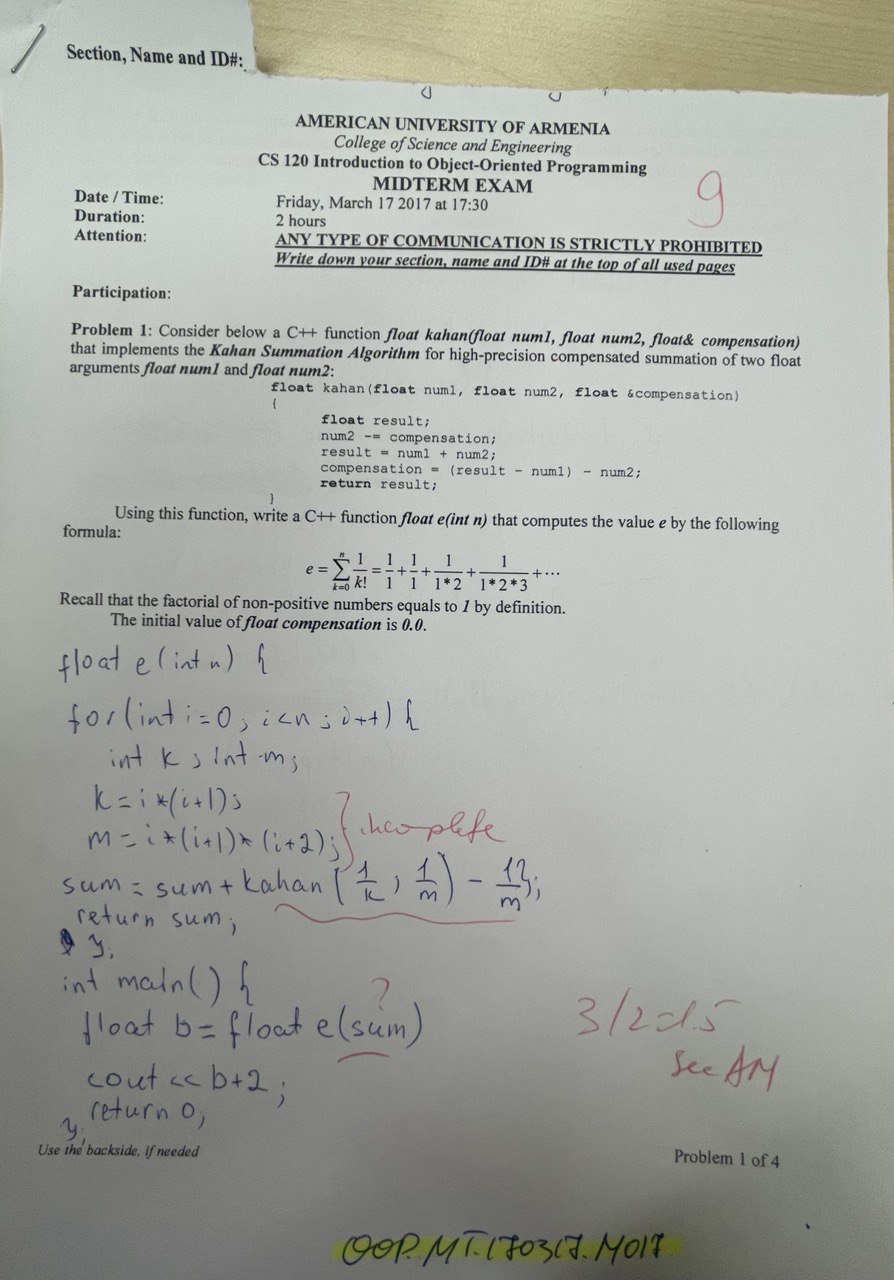 Section, Name and ID#:
AMERICAN UNIVERSITY OF ARMENIA
College of Science and Engineering
CS 120 Introduction to Object-Oriented Programming
MIDTERM EXAM
9
Date / Time: Friday, March 17 2017 at 17:30
Duration: 2 hours
Attention: ANY TYPE OF COMMUNICATION IS STRICTLY PROHIBITED
Write down your section, name and ID# at the top of all used pages
Participation:
Problem 1: Consider below a C++ function float kahan(float num1, float num2, float& compensation)
that implements the Kahan Summation Algorithm for high-precision compensated summation of two float
arguments float num1 and float num2:
float kahan(float num1, float num2, float &compensation)
{
float result;
num2 -= compensation;
result = num1 + num2;
compensation = (result - num1) - num2;
return result;
}
Using this function, write a C++ function float e(int n) that computes the value e by the following
formula:
e = ∑ⁿₖ₌₀ 1/k! = 1/1 + 1/1 + 1/1*2 + 1/1*2*3 + ···
Recall that the factorial of non-positive numbers equals to 1 by definition.
The initial value of float compensation is 0.0.
float e(int n) {
for(int i=0; i<n; i++) {
int k; int m;
k=i*(i+1);
m=i*(i+1)*(i+2);
incomplete
sum = sum + kahan(1/k, 1/m) - 1/m;
return sum;
}
int main() {
?
float b= float e(sum)
3/2=1.5
see AM
cout << b+2;
return 0,
}
Use the backside, if needed
Problem 1 of 4
OOP.MT.170317.M017